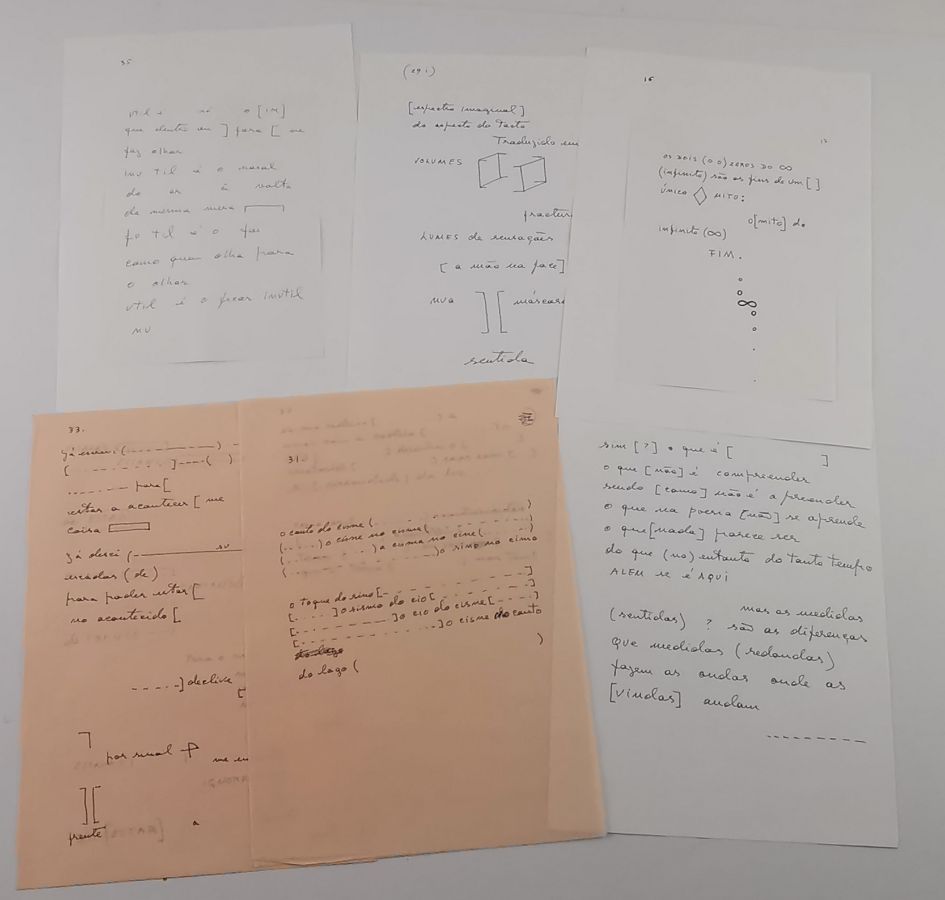 35
o [im]
que dentro eu ] para [ me
faz olhar
inu til é o mural
do ar à volta
da mesma mesa
fo til é o que
como quem olha para
o olhar
util é o ficar inutil
nu
(29 i)
[espectro imaginal]
do aspecto do Tacto
Traduzido em
VOLUMES
fractur
LUMES de sensações
[ a mão na face]
nua ] [ máscara
sentida
16
17
OS DOIS (0 0) ZEROS DO ∞
(infinito) são os fins de um [ ]
único ◊ MITO:
o[mito] do
infinito (∞)
FIM.
o
o
∞
o
o
.
.
33.
Já (- - - - - - - -)
[ - - - - - - - - ] - - - - ( )
- - - - - - para [
estar a acontecer [ me
coisa
Já desci (
su
escadas (de)
para poder estar [
no acontecido [
- - - - - ] declive
[
por sinal
me
] [
frente
a
31.
o canto do cisne ( - - - - - - - - - - )
( - - - - - ) o cisne no cisma ( - - - - - - - )
( - - - - - - - - - ) a cisma no cine ( - - - - - )
( - - - - - - - - - - - - - ) o sino no cimo
o toque do sino [ - - - - - - - - - - - ]
[ - - - - ] o sismo do cio [ - - - - - - - - ]
[ - - - - - - - - - ] o cio do cisne [ - - - - ]
[ - - - - - - - - - - - - - ] o cisne do canto
do lago
do lago ( )
sim [?] o que é [ ]
o que [não] é compreender
sendo [como] não é apreender
o que na poesia [não] se aprende
o que [nada] parece ser
do que (no) entanto do tanto tempo
ALÉM se é AQUI
mas as medidas
(sentidas) ? são as diferenças
que medidas (redondas)
fazem as ondas onde as
[vindas] andam
- - - - - - - - -